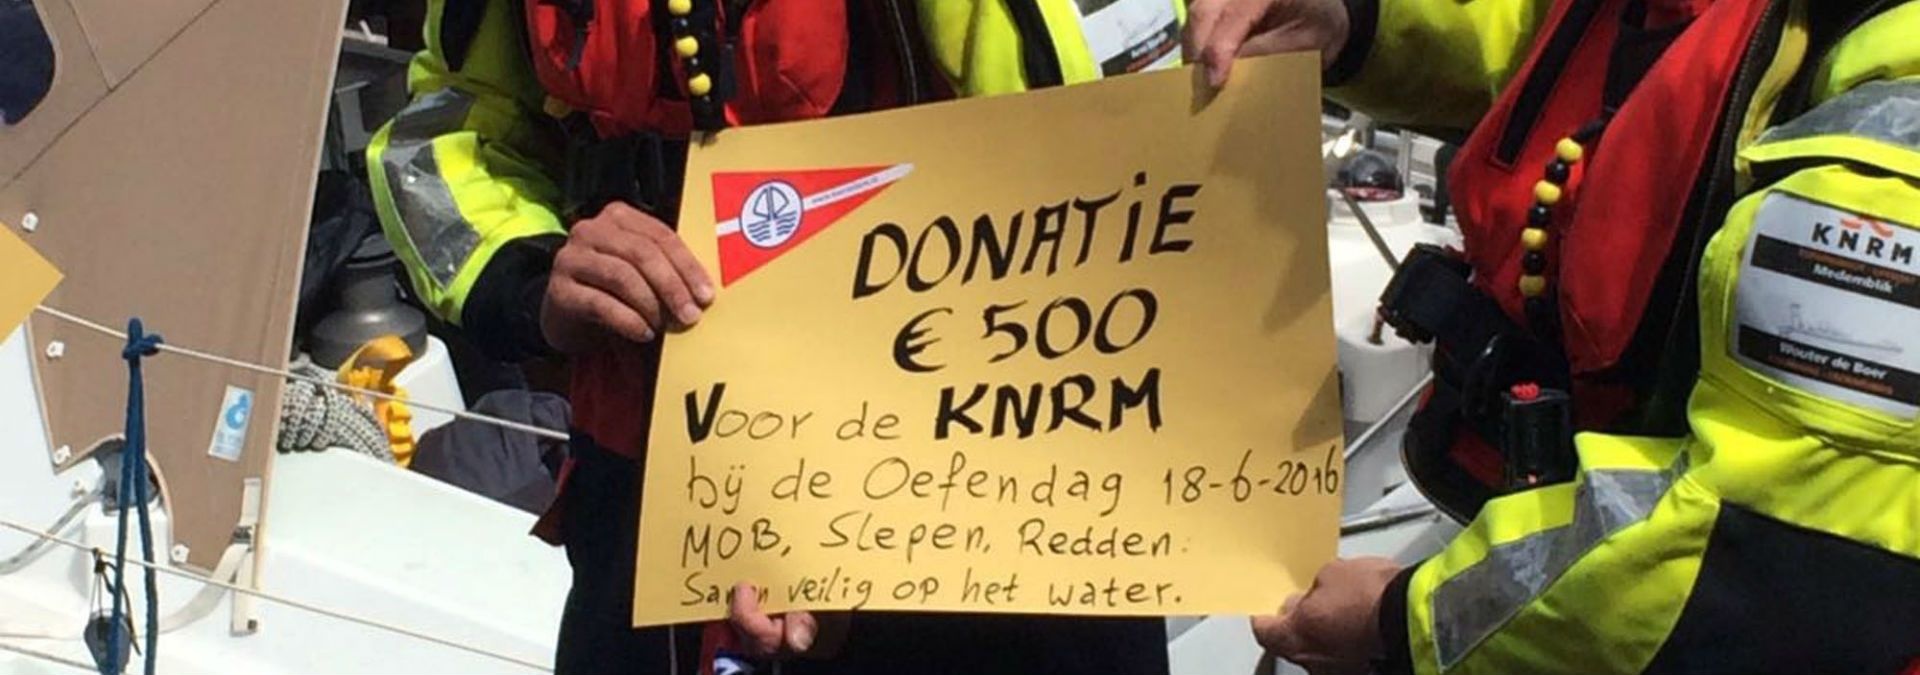 DONATIE
€ 500
Voor de KNRM
bij de Oefendag 18-6-2016
MOB, Slepen, Redden.
Samen veilig op het water.
KNRM
Medemblik
Wouter de Boer